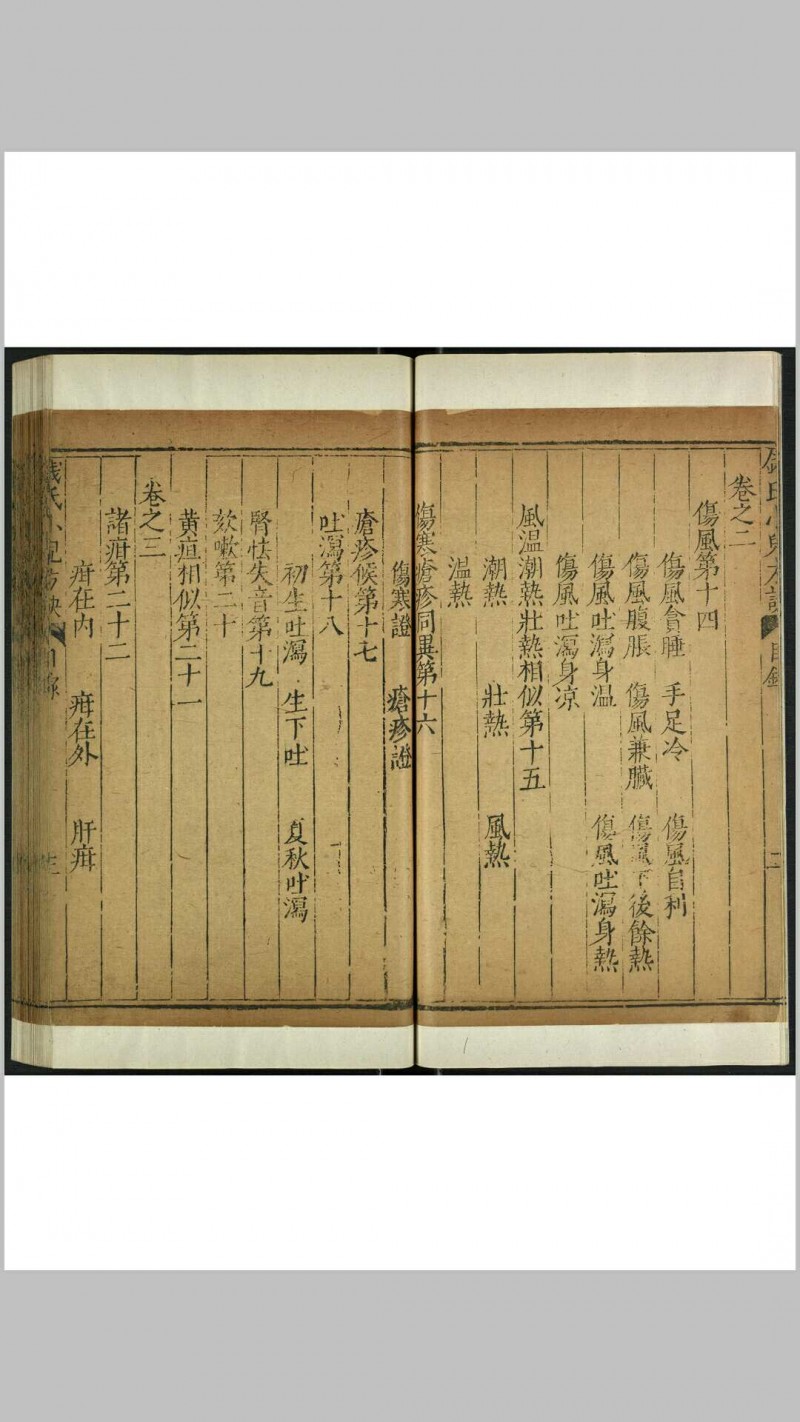 卷之二
傷風第十四
傷風貪睡 手足冷 傷風自利
傷風腹脹 傷風兼臟 傷風下後餘熱
傷風吐瀉身温 傷風吐瀉身熱
傷風吐瀉身凉
風温潮熱壯熱相似第十五
潮熱 壯熱 風熱
温熱
傷寒瘡疹同異第十六
傷寒證 瘡疹證
瘡疹候第十七
吐瀉第十八
初生吐瀉 生下吐 夏秋吐瀉
腎怯失音第十九
欬嗽第二十
黄疸相似第二十一
卷之三
諸疳第二十二
疳在内 疳在外 肝疳
錢氏小兒方訣 目録